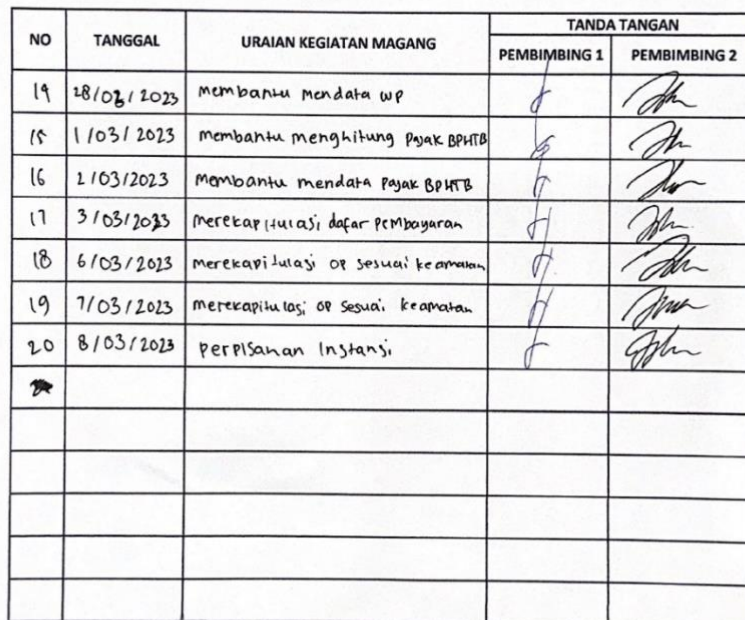 NO TANGGAL URAIAN KEGIATAN MAGANG TANDA TANGAN
PEMBIMBING 1 PEMBIMBING 2
14 28/02/2023 membantu mendata WP
15 1/03/2023 membantu menghitung Pajak BPHTB
16 2/03/2023 membantu mendata Pajak BPHTB
17 3/03/2023 merekapitulasi dafar pembayaran
18 6/03/2023 merekapitulasi OP sesuai keamatan
19 7/03/2023 merekapitulasi OP sesuai keamatan
20 8/03/2023 perpisanan Instansi